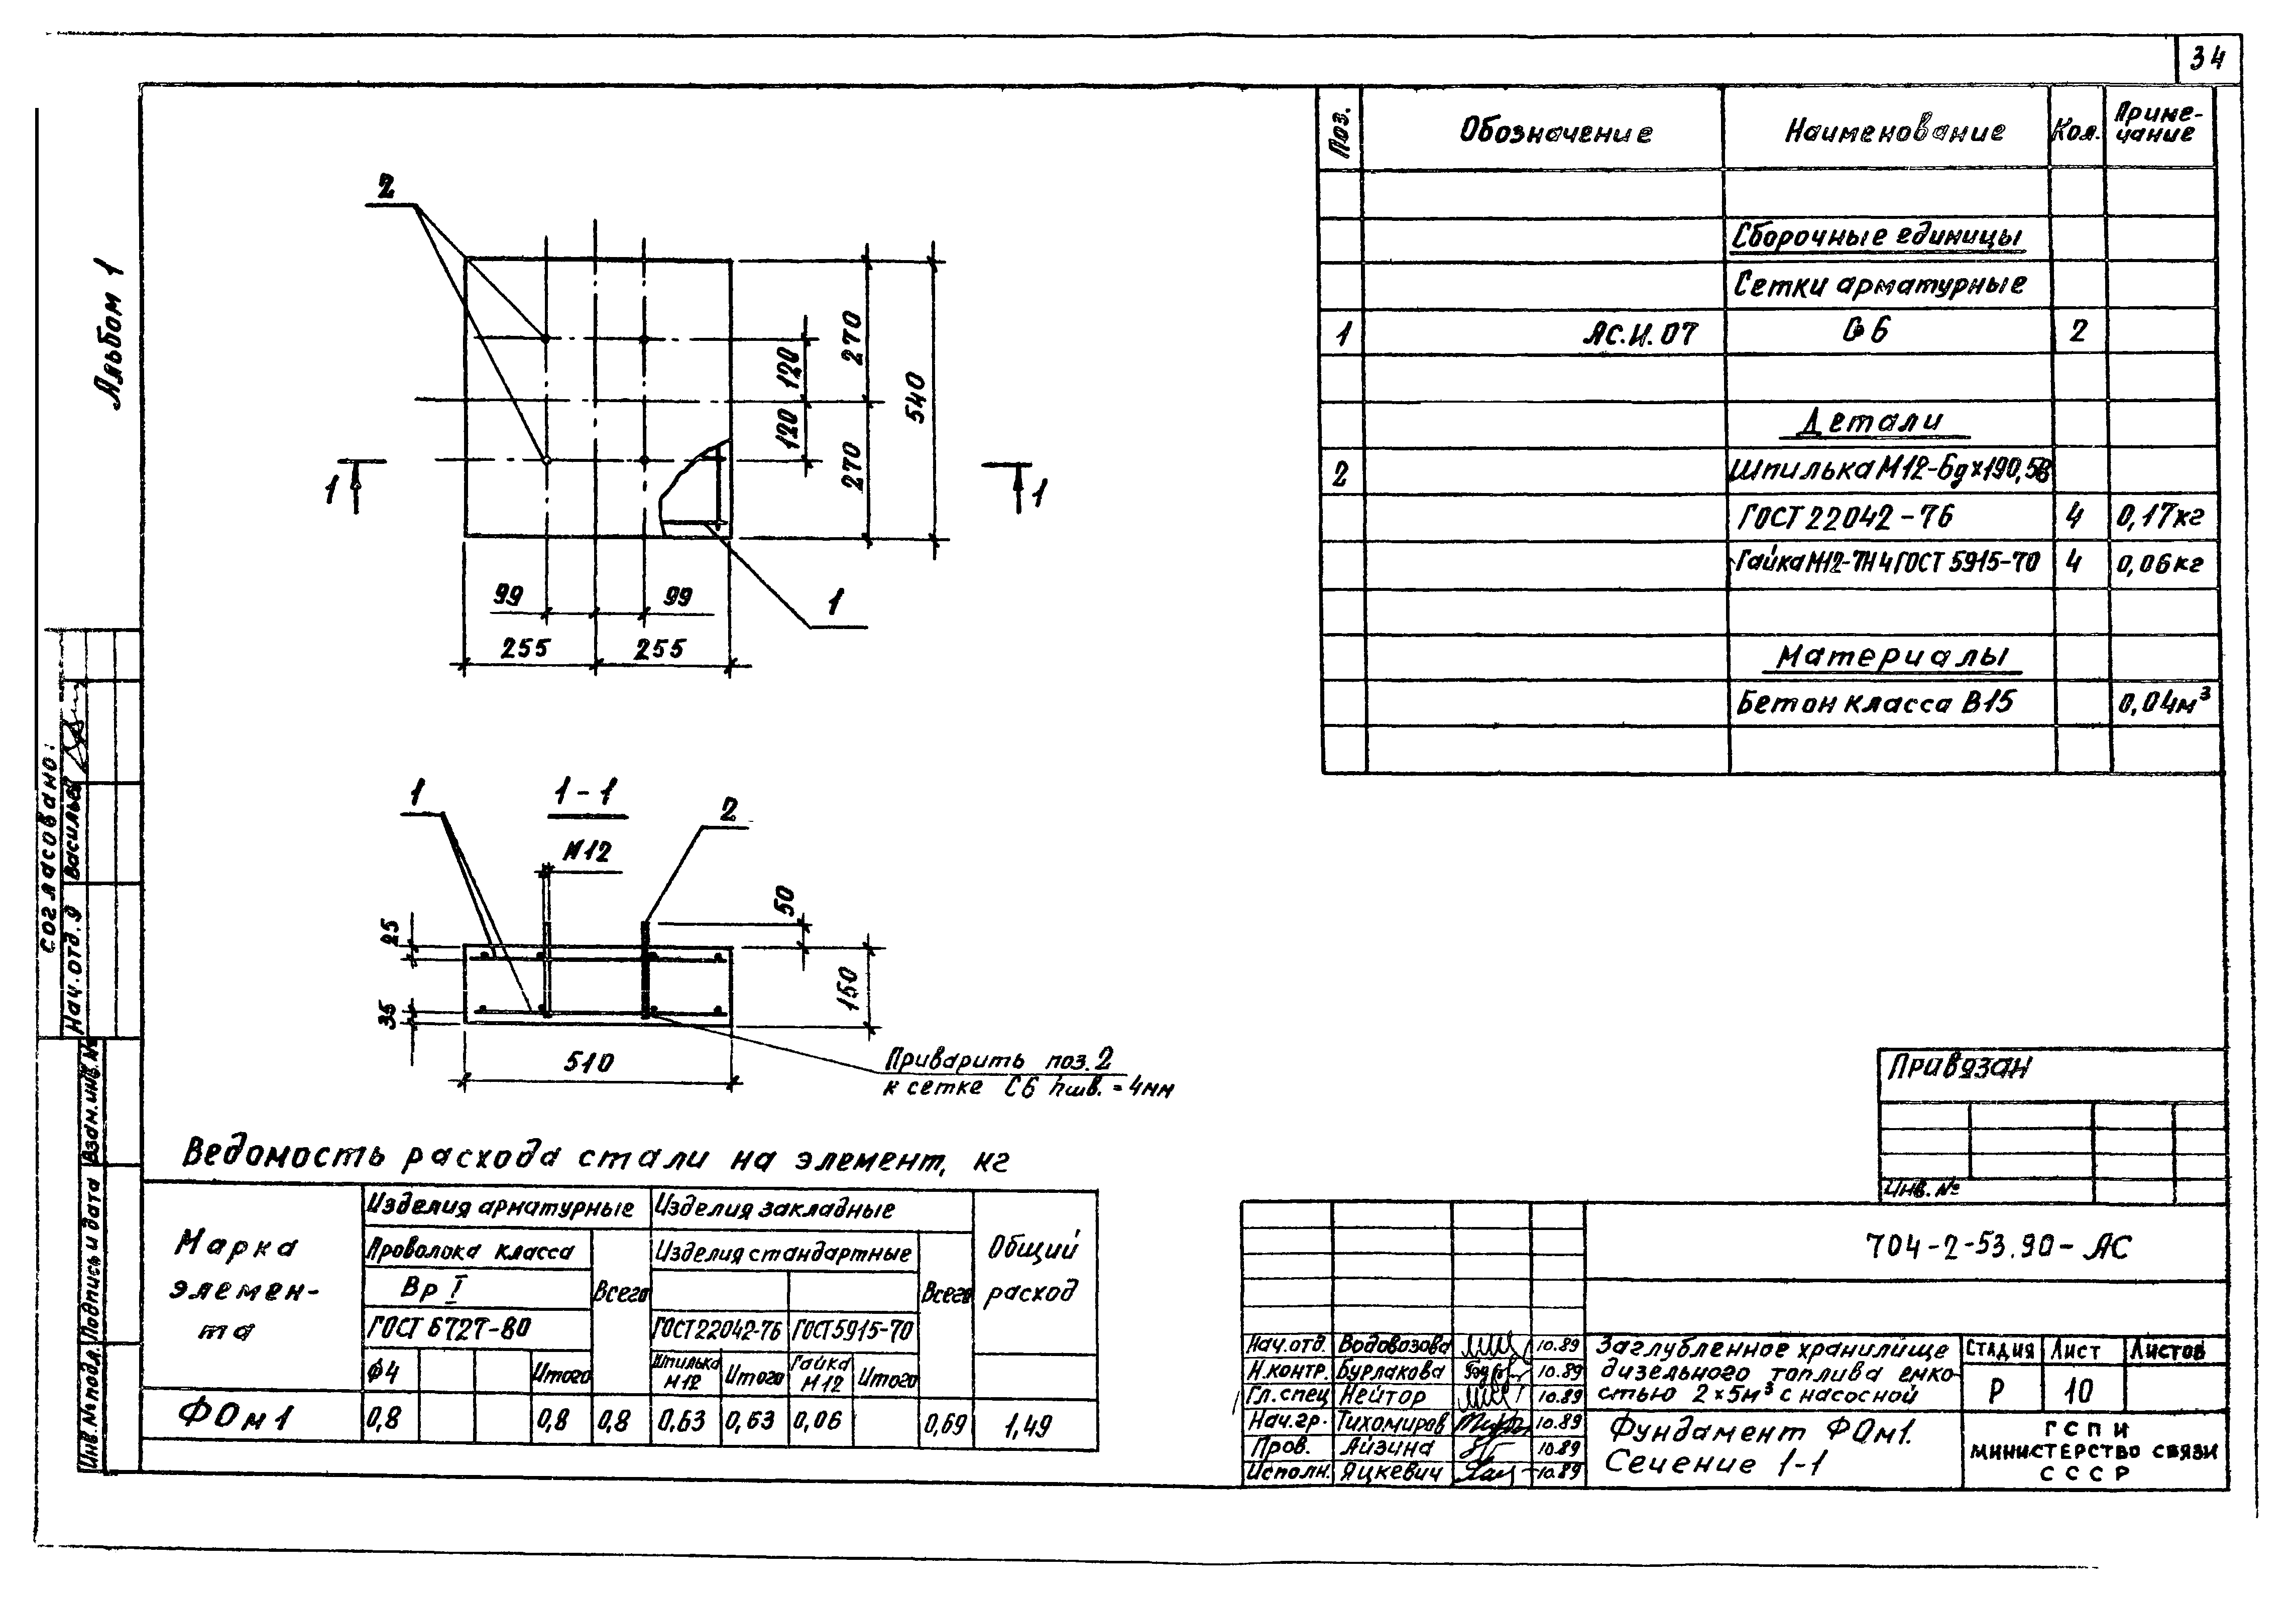 34
Альбом 1
Поз.
Обозначение
Наименование
Кол.
Приме-
чание
Сборочные единицы
Сетки арматурные
1 АС.И.07 С6 2
Детали
2 Шпилька М12-6gx190,58
ГОСТ 22042-76 4 0,17кг
Гайка М12-7Н4 ГОСТ 5915-70 4 0,06кг
Материалы
Бетон класса В15 0,04м³
2
270
120
540
120
270
1
1
99
99
1
255
255
1
1-1
2
М12
50
25
150
35
510
Приварить поз.2
к сетке С6 hшв.=4мм
Ведомость расхода стали на элемент, кг
Марка
элемен-
та
Изделия арматурные
Изделия закладные
Общий
расход
Проволока класса
Вр I
ГОСТ 6727-80
Всего
Изделия стандартные
Всего
ГОСТ22042-76
ГОСТ5915-70
Ф4
Итого
Шпилька
М12
Итого
Гайка
М12
Итого
ФОм1 0,8 0,8 0,8 0,63 0,63 0,06 0,69 1,49
Привязан
Инв. №
704-2-53.90-АС
Нач.отд. Водовозова 10.89
Н.контр. Бурлакова 10.89
Гл.спец Нейтор 10.89
Нач.гр. Тихомиров 10.89
Пров. Айзина 10.89
Исполн. Яцкевич 10.89
Заглубленное хранилище
дизельного топлива емко-
стью 2×5м³ с насосной
Стадия Лист Листов
Р 10
Фундамент ФОм1.
Сечение 1-1
ГСПИ
МИНИСТЕРСТВО СВЯЗИ
СССР
согласовано:
Нач.отд.9 Васильев
Взам.инв.№
Подпись и дата
Инв.№подл.